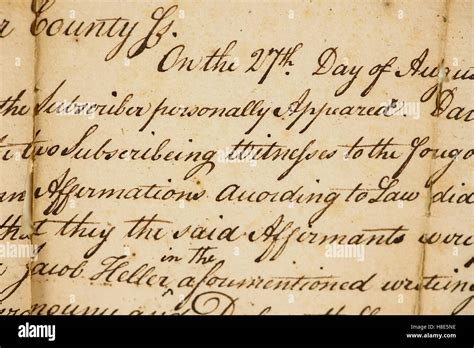 r County Ss.
On the 27th. Day of Augus
the Subscriber personally Appeared Dav
two Subscribeing Witnesses to the forego
an Affirmations according to Law did
that they the said Affirmants were
in the
Jacob Heller, aforementioned writing
alamy
Image ID: H8E5NE
www.alamy.com